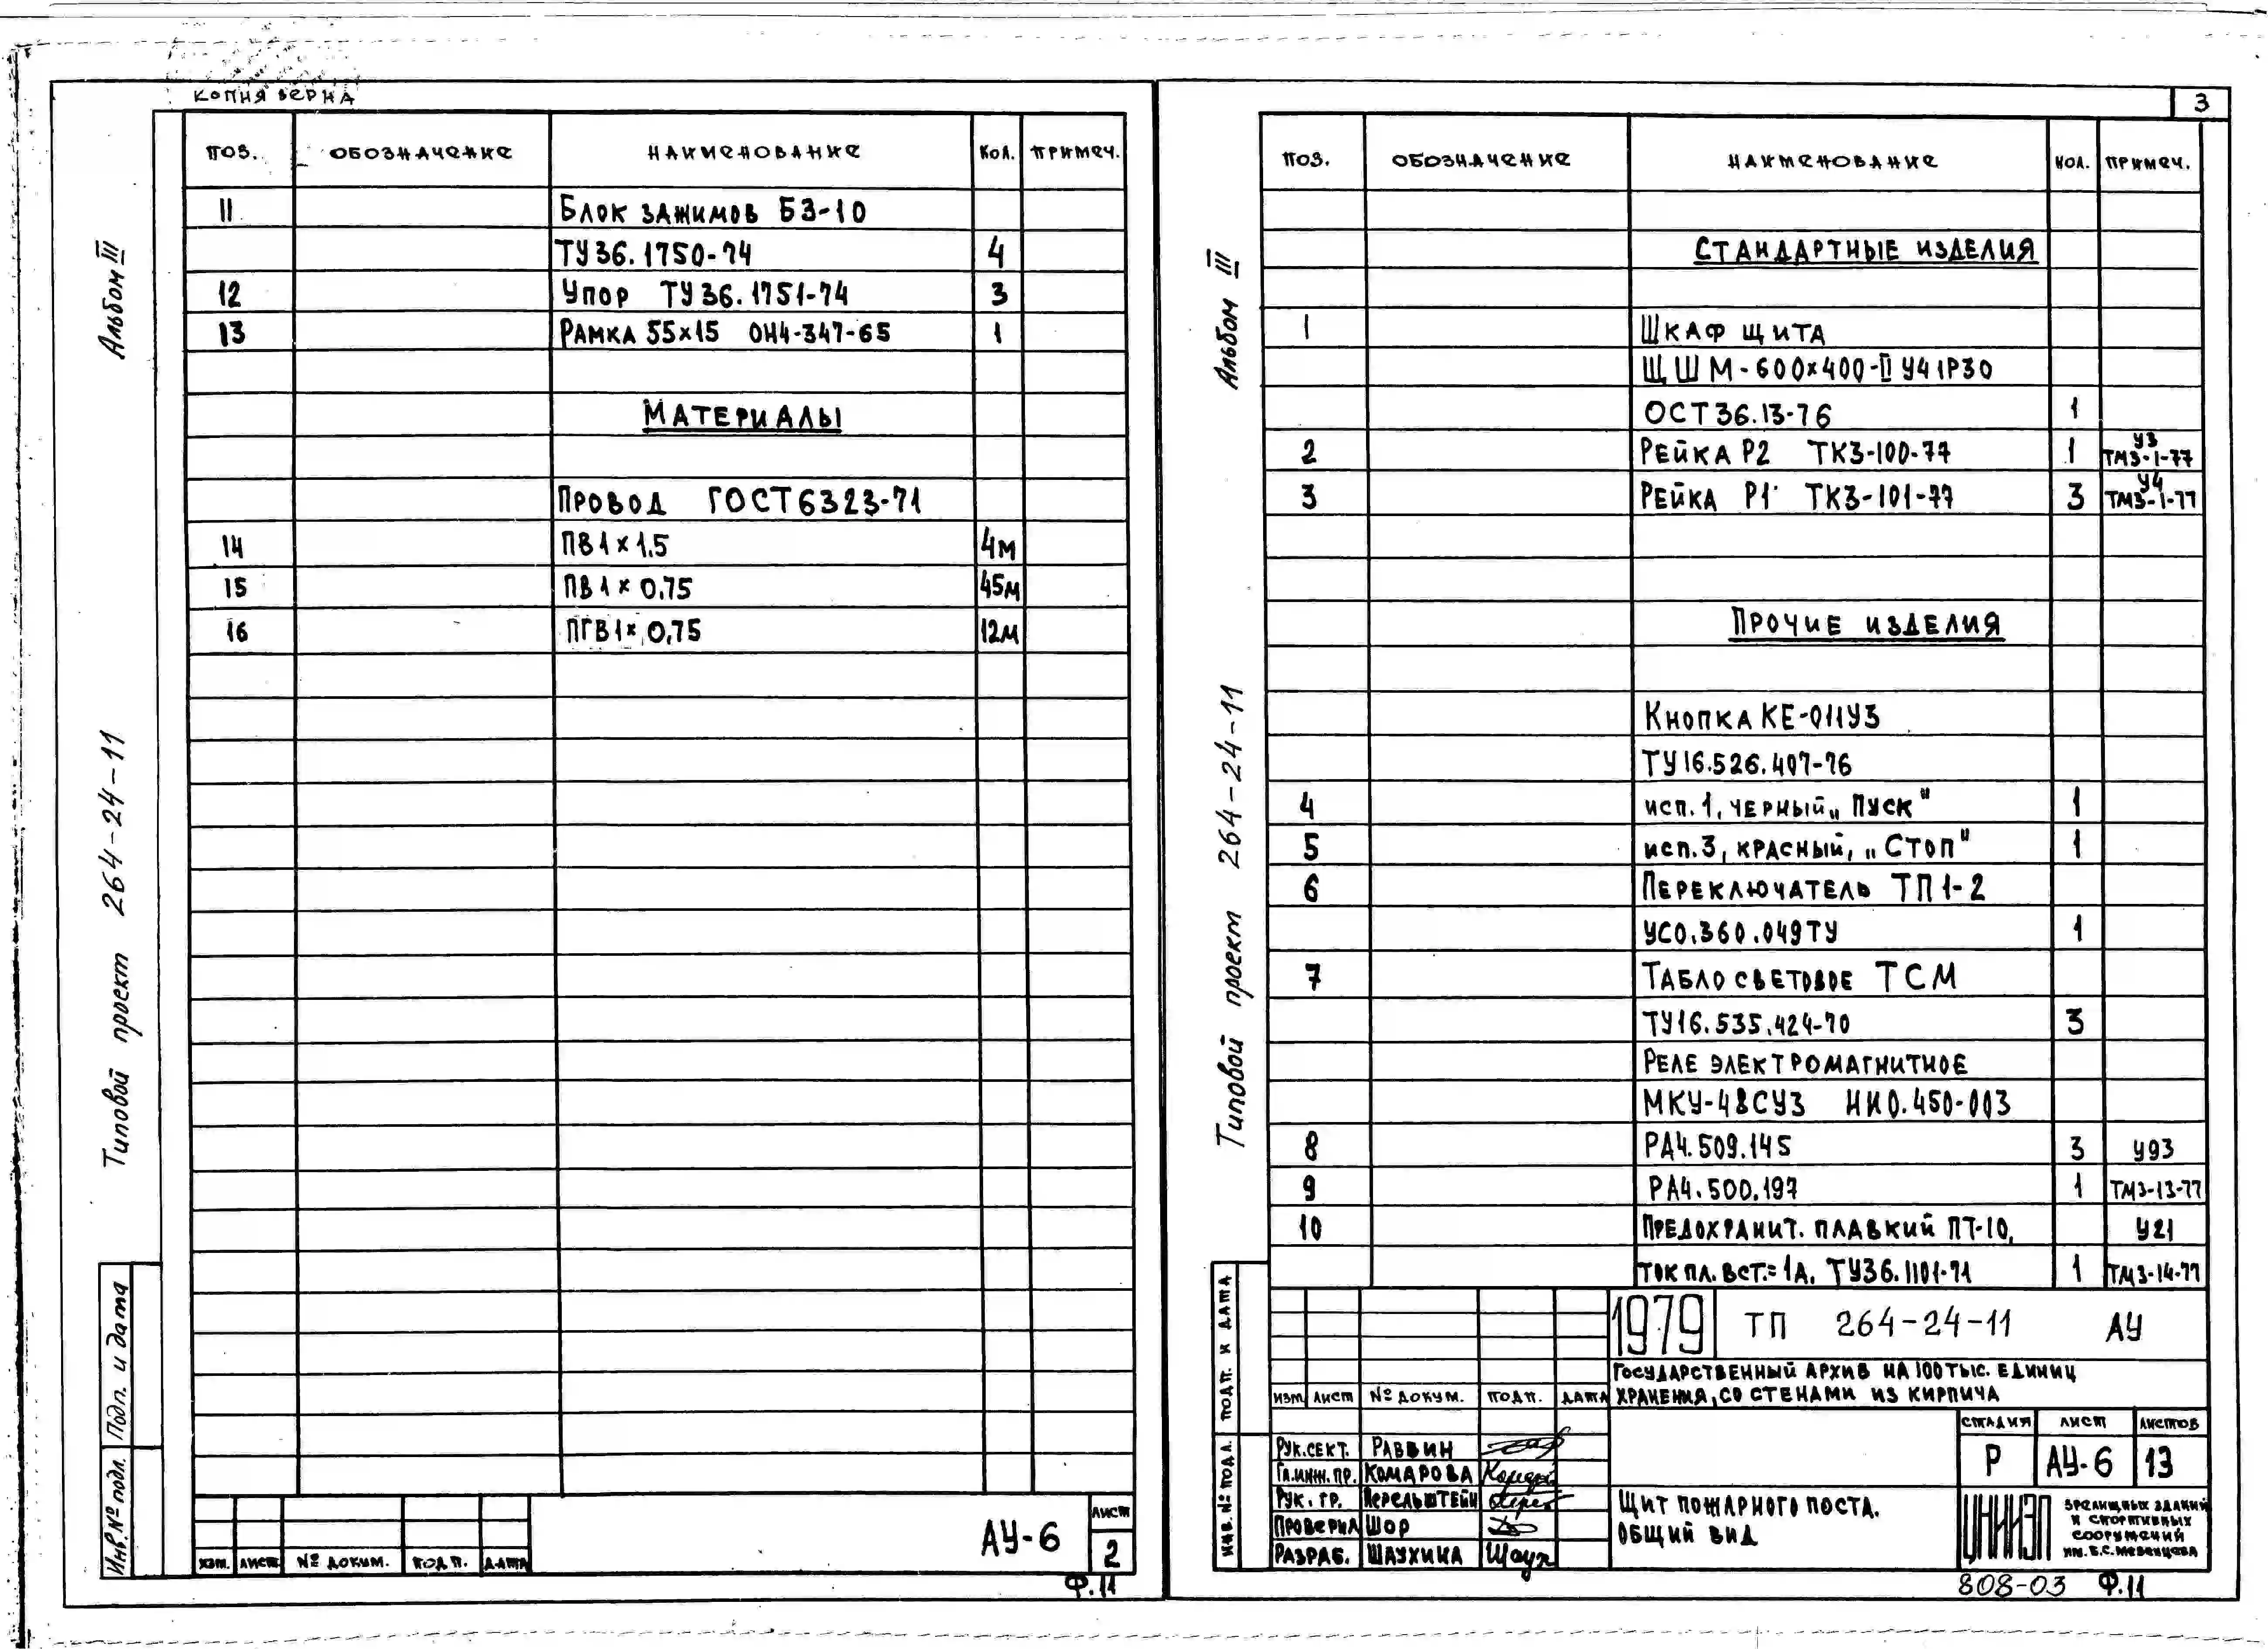 КОПИЯ ВЕРНА
Альбом III
Типовой проект 264-24-11
ПОЗ. ОБОЗНАЧЕНИЕ НАИМЕНОВАНИЕ КОЛ. ПРИМЕЧ.
11 БЛОК ЗАЖИМОВ БЗ-10
ТУ36.1750-74 4
12 УПОР ТУ36.1751-74 3
13 РАМКА 55×15 ОН4-347-65 1
МАТЕРИАЛЫ
ПРОВОД ГОСТ6323-71
14 ПВ1×1.5 4м
15 ПВ1×0.75 45м
16 ПГВ1×0,75 12м
Инв. № подл. Подп. и дата
ИЗМ. ЛИСТ № ДОКУМ. ПОДП. ДАТА
АУ-6
ЛИСТ
2
Ф.11
3
Альбом III
Типовой проект 264-24-11
ПОЗ. ОБОЗНАЧЕНИЕ НАИМЕНОВАНИЕ КОЛ. ПРИМЕЧ.
СТАНДАРТНЫЕ ИЗДЕЛИЯ
1 ШКАФ ЩИТА
ЩШМ-600×400-II У4 IP30
ОСТ36.13-76 1
2 РЕЙКА Р2 ТК3-100-77 1 У3 ТМ3-1-77
3 РЕЙКА Р1 ТК3-101-77 3 У4 ТМ3-1-77
ПРОЧИЕ ИЗДЕЛИЯ
КНОПКА КЕ-011У3
ТУ16.526.407-76
4 ИСП.1, ЧЕРНЫЙ „ПУСК" 1
5 ИСП.3, КРАСНЫЙ, „СТОП" 1
6 ПЕРЕКЛЮЧАТЕЛЬ ТП1-2
УСО.360.049ТУ 1
7 ТАБЛО СВЕТОВОЕ ТСМ
ТУ16.535.424-70 3
РЕЛЕ ЭЛЕКТРОМАГНИТНОЕ
МКУ-48СУ3 НИ0.450-003
8 РА4.509.145 3 У93
9 РА4.500.197 1 ТМ3-13-77
10 ПРЕДОХРАНИТ. ПЛАВКИЙ ПТ-10, У21
ТОК ПЛ. ВСТ.=1А. ТУ36.1101-71 1 ТМ3-14-77
1979 ТП 264-24-11 АУ
ГОСУДАРСТВЕННЫЙ АРХИВ НА 100 ТЫС. ЕДИНИЦ
ХРАНЕНИЯ, СО СТЕНАМИ ИЗ КИРПИЧА
ИЗМ. ЛИСТ № ДОКУМ. ПОДП. ДАТА
СТАДИЯ ЛИСТ ЛИСТОВ
Р АУ-6 13
РУК.СЕКТ. РАВВИН
ГЛ.ИНЖ.ПР. КОМАРОВА
РУК. ГР. ПЕРЕЛЬШТЕЙН
ПРОВЕРИЛ ШОР
РАЗРАБ. ШАУХИНА
ЩИТ ПОЖАРНОГО ПОСТА.
ОБЩИЙ ВИД
ЦНИИЭП
ЗРЕЛИЩНЫХ ЗДАНИЙ
И СПОРТИВНЫХ
СООРУЖЕНИЙ
ИМ. Б.С. МЕЗЕНЦЕВА
ИНВ. № ПОДЛ. ПОДП. И ДАТА
808-03 Ф.11